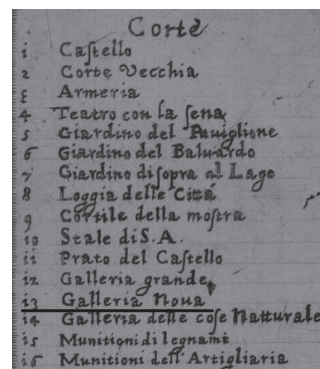 Corte
1 Castello
2 Corte Vecchia
3 Armeria
4 Teatro con la sena
5 Giardino del Pauiglione
6 Giardino del Baluardo
7 Giardino di sopra al Lago
8 Loggia delle Cittá
9 Cortile della mostra
10 Stale di S.A.
11 Prato del Castello
12 Galleria grande
13 Galleria Noua
14 Galleria delle cose Natturale
15 Munitioni di legname
16 Munitioni dell'Artigliaria